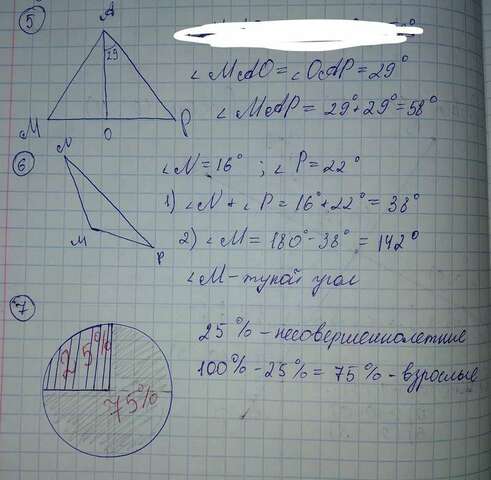 5
A
29
M
O
P
∠MAO = ∠OAP = 29°
∠MAP = 29° + 29° = 58°
6
N
M
P
∠N = 16° ; ∠P = 22°
1) ∠N + ∠P = 16° + 22° = 38°
2) ∠M = 180° - 38° = 142°
∠M - тупой угол
7
25%
75%
25% - несовершеннолетние
100% - 25% = 75% - взрослые